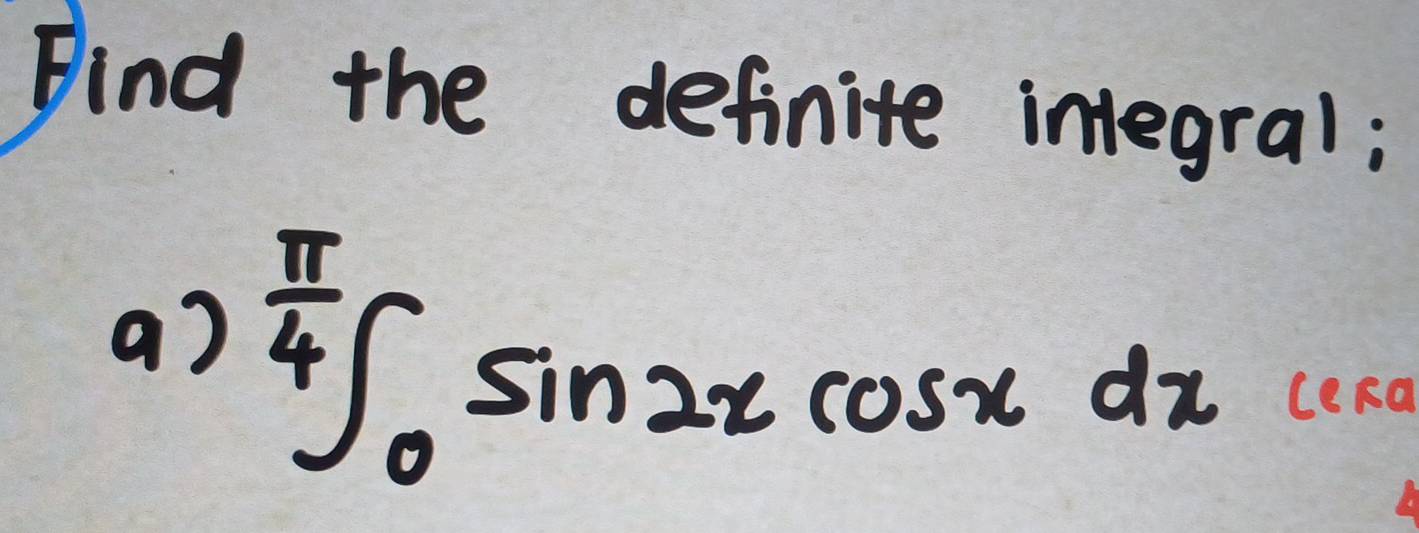 Find the definite integral;
a) π/4 ∫ 0 sin 2x cos x dx
4